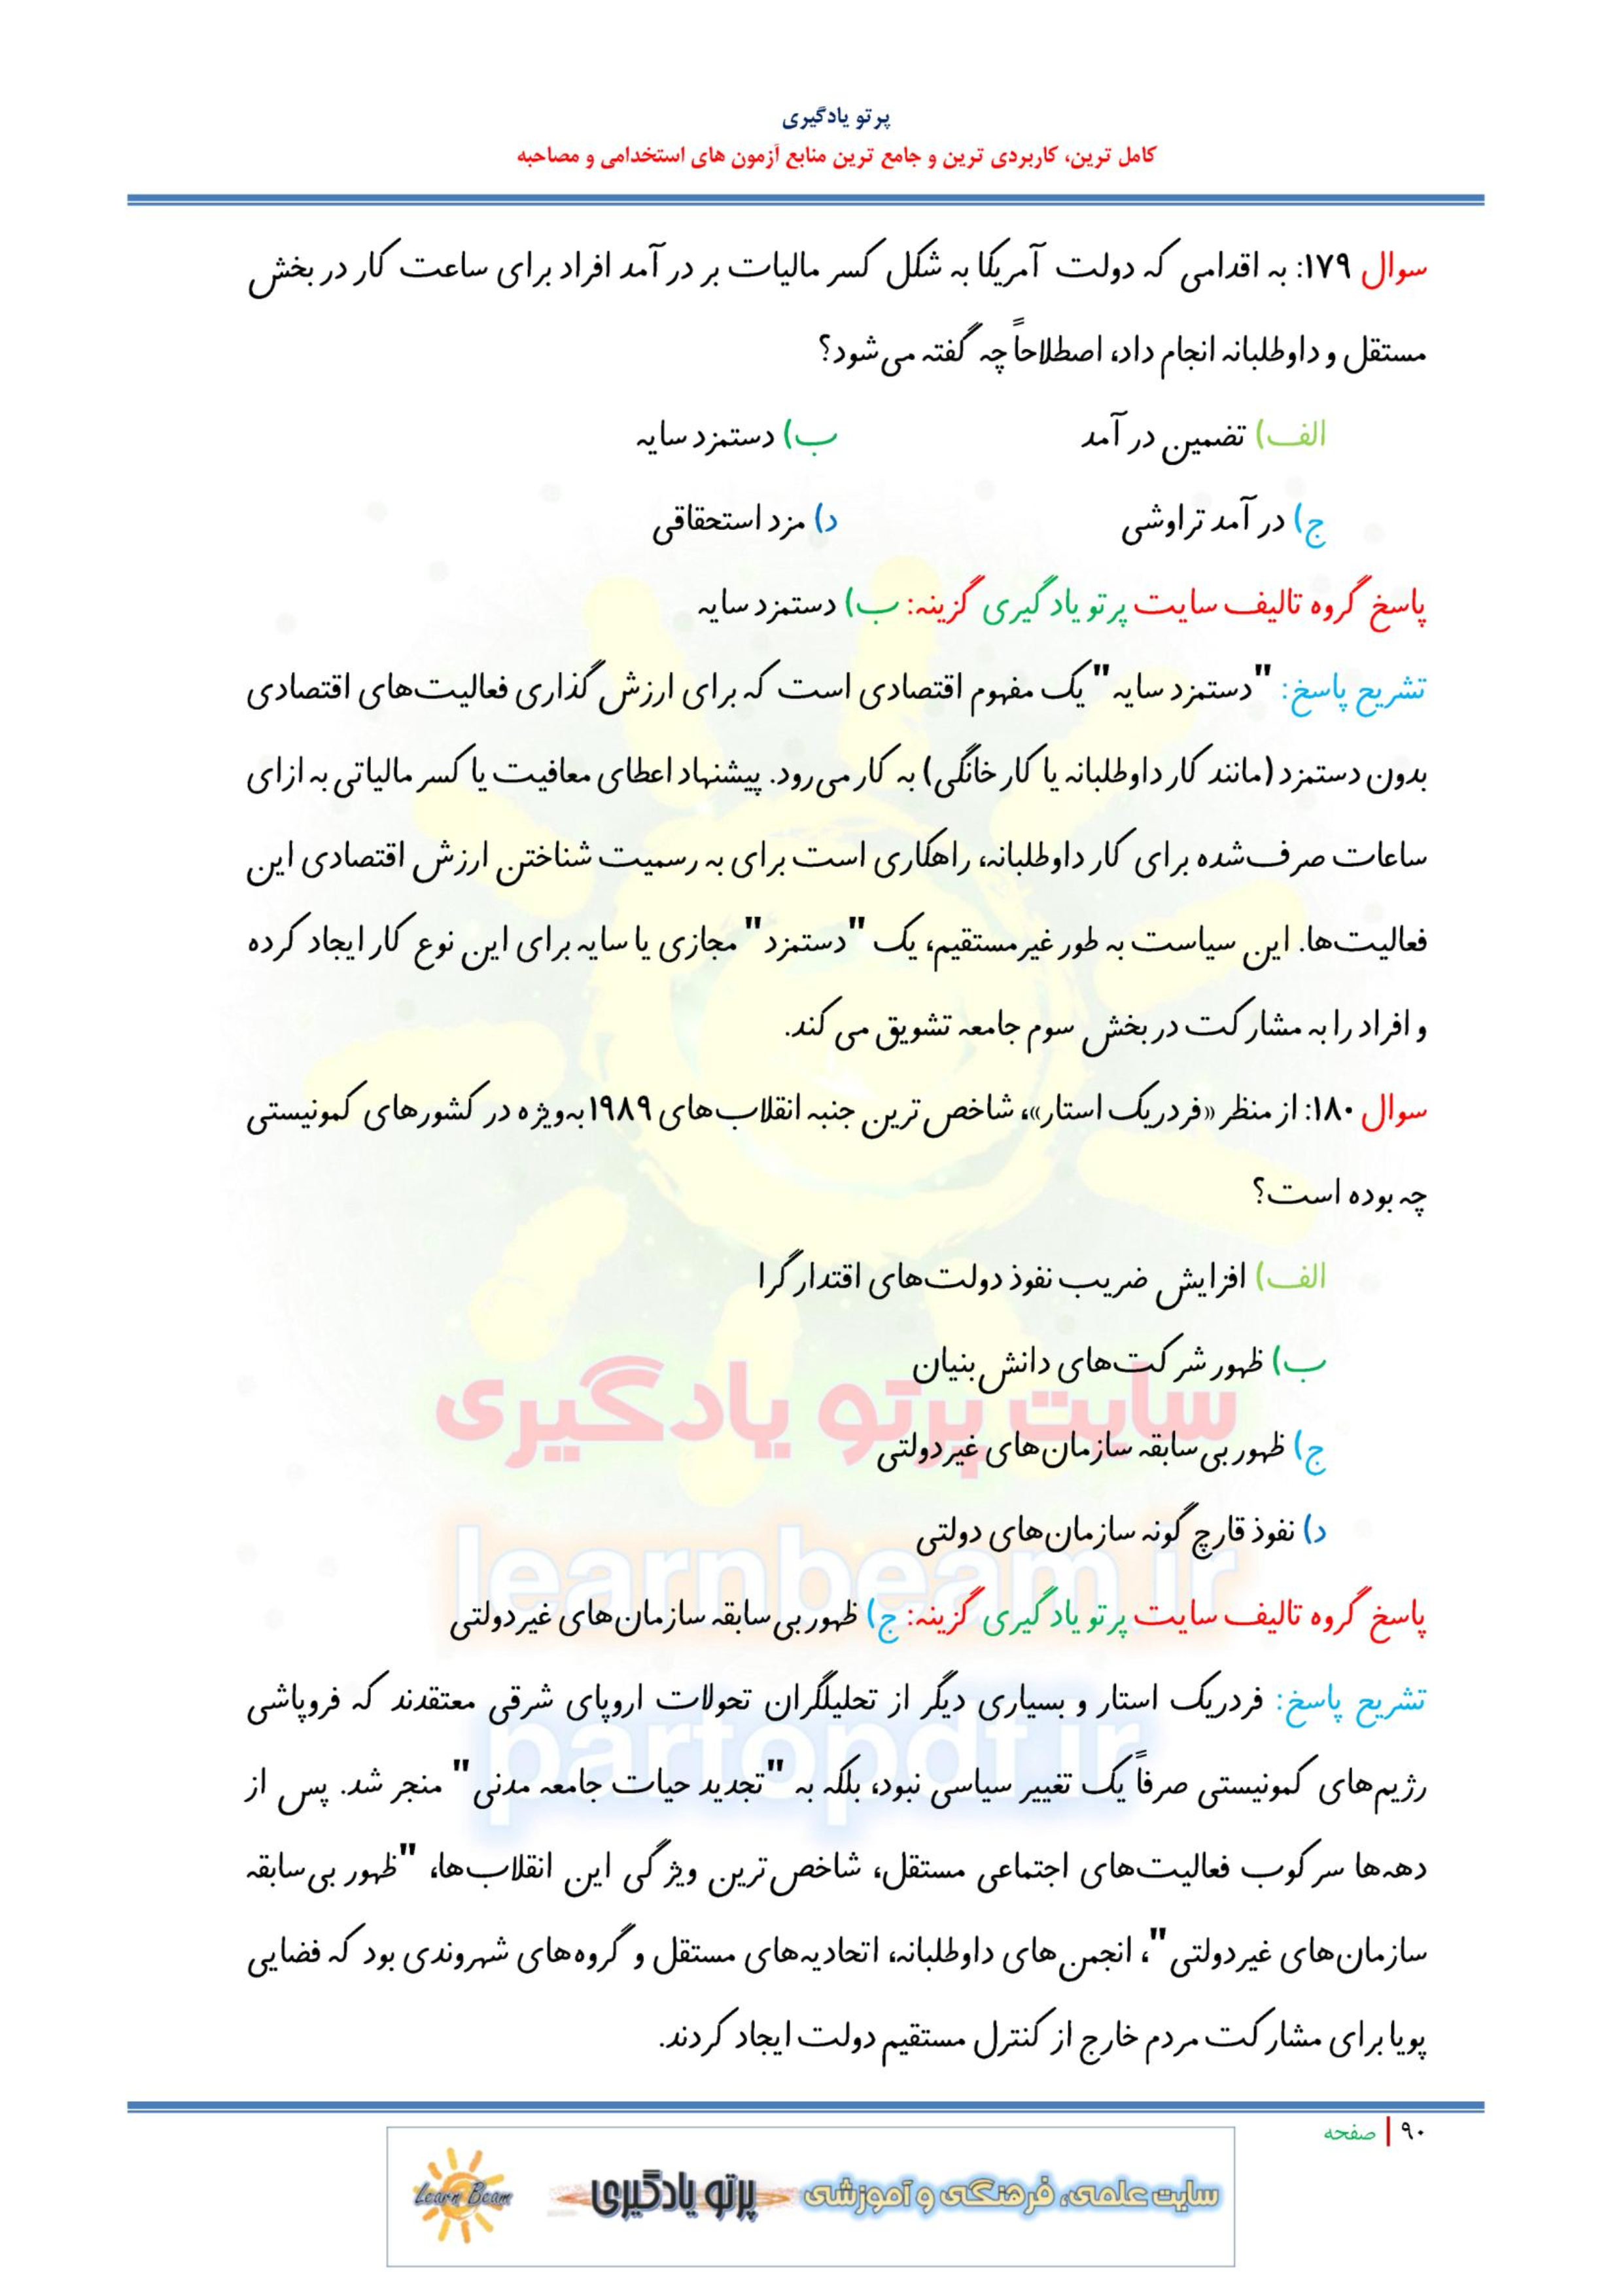 پرتو یادگیری
کامل ترین، کاربردی ترین و جامع ترین منابع آزمون های استخدامی و مصاحبه
سوال ۱۷۹: به اقدامی که دولت آمریکا به شکل کسر مالیات بر درآمد افراد برای ساعت کار در بخش
مستقل و داوطلبانه انجام داد، اصطلاحاً چه گفته می‌شود؟
الف) تضمین درآمد ب) دستمزد سایه
ج) درآمد تراوشی د) مزد استحقاقی
پاسخ گروه تالیف سایت پرتو یادگیری گزینه: ب) دستمزد سایه
تشریح پاسخ: "دستمزد سایه" یک مفهوم اقتصادی است که برای ارزش گذاری فعالیت‌های اقتصادی
بدون دستمزد (مانند کار داوطلبانه یا کار خانگی) به کار می‌رود. پیشنهاد اعطای معافیت یا کسر مالیاتی به ازای
ساعات صرف‌شده برای کار داوطلبانه، راهکاری است برای به رسمیت شناختن ارزش اقتصادی این
فعالیت‌ها. این سیاست به طور غیرمستقیم، یک "دستمزد" مجازی یا سایه برای این نوع کار ایجاد کرده
و افراد را به مشارکت در بخش سوم جامعه تشویق می کند.
سوال ۱۸۰: از منظر «فردریک استار»، شاخص ترین جنبه انقلاب‌های ۱۹۸۹ به‌ویژه در کشورهای کمونیستی
چه بوده است؟
الف) افزایش ضریب نفوذ دولت‌های اقتدارگرا
ب) ظهور شرکت‌های دانش بنیان
ج) ظهور بی سابقه سازمان‌های غیردولتی
د) نفوذ قارچ گونه سازمان‌های دولتی
پاسخ گروه تالیف سایت پرتو یادگیری گزینه: ج) ظهور بی سابقه سازمان‌های غیردولتی
تشریح پاسخ: فردریک استار و بسیاری دیگر از تحلیلگران تحولات اروپای شرقی معتقدند که فروپاشی
رژیم‌های کمونیستی صرفاً یک تغییر سیاسی نبود، بلکه به "تجدید حیات جامعه مدنی" منجر شد. پس از
دهه‌ها سرکوب فعالیت‌های اجتماعی مستقل، شاخص ترین ویژگی این انقلاب‌ها، "ظهور بی سابقه
سازمان‌های غیردولتی"، انجمن های داوطلبانه، اتحادیه‌های مستقل و گروه‌های شهروندی بود که فضایی
پویا برای مشارکت مردم خارج از کنترل مستقیم دولت ایجاد کردند.
سایت پرتو یادگیری
learnbeam.ir
partopdf.ir
۹۰ | صفحه
سایت علمی، فرهنگی و آموزشی پرتو یادگیری Learn Beam